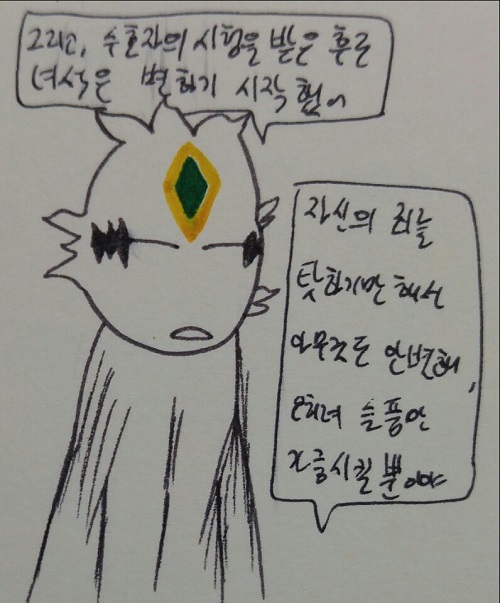 그리고, 수호자의 시험을 받은 후로
녀석은 변하기 시작했어
자신의 죄를
탓하기만 해선
아무것도 안변해,
오히려 슬픔만
가중시킬 뿐이야